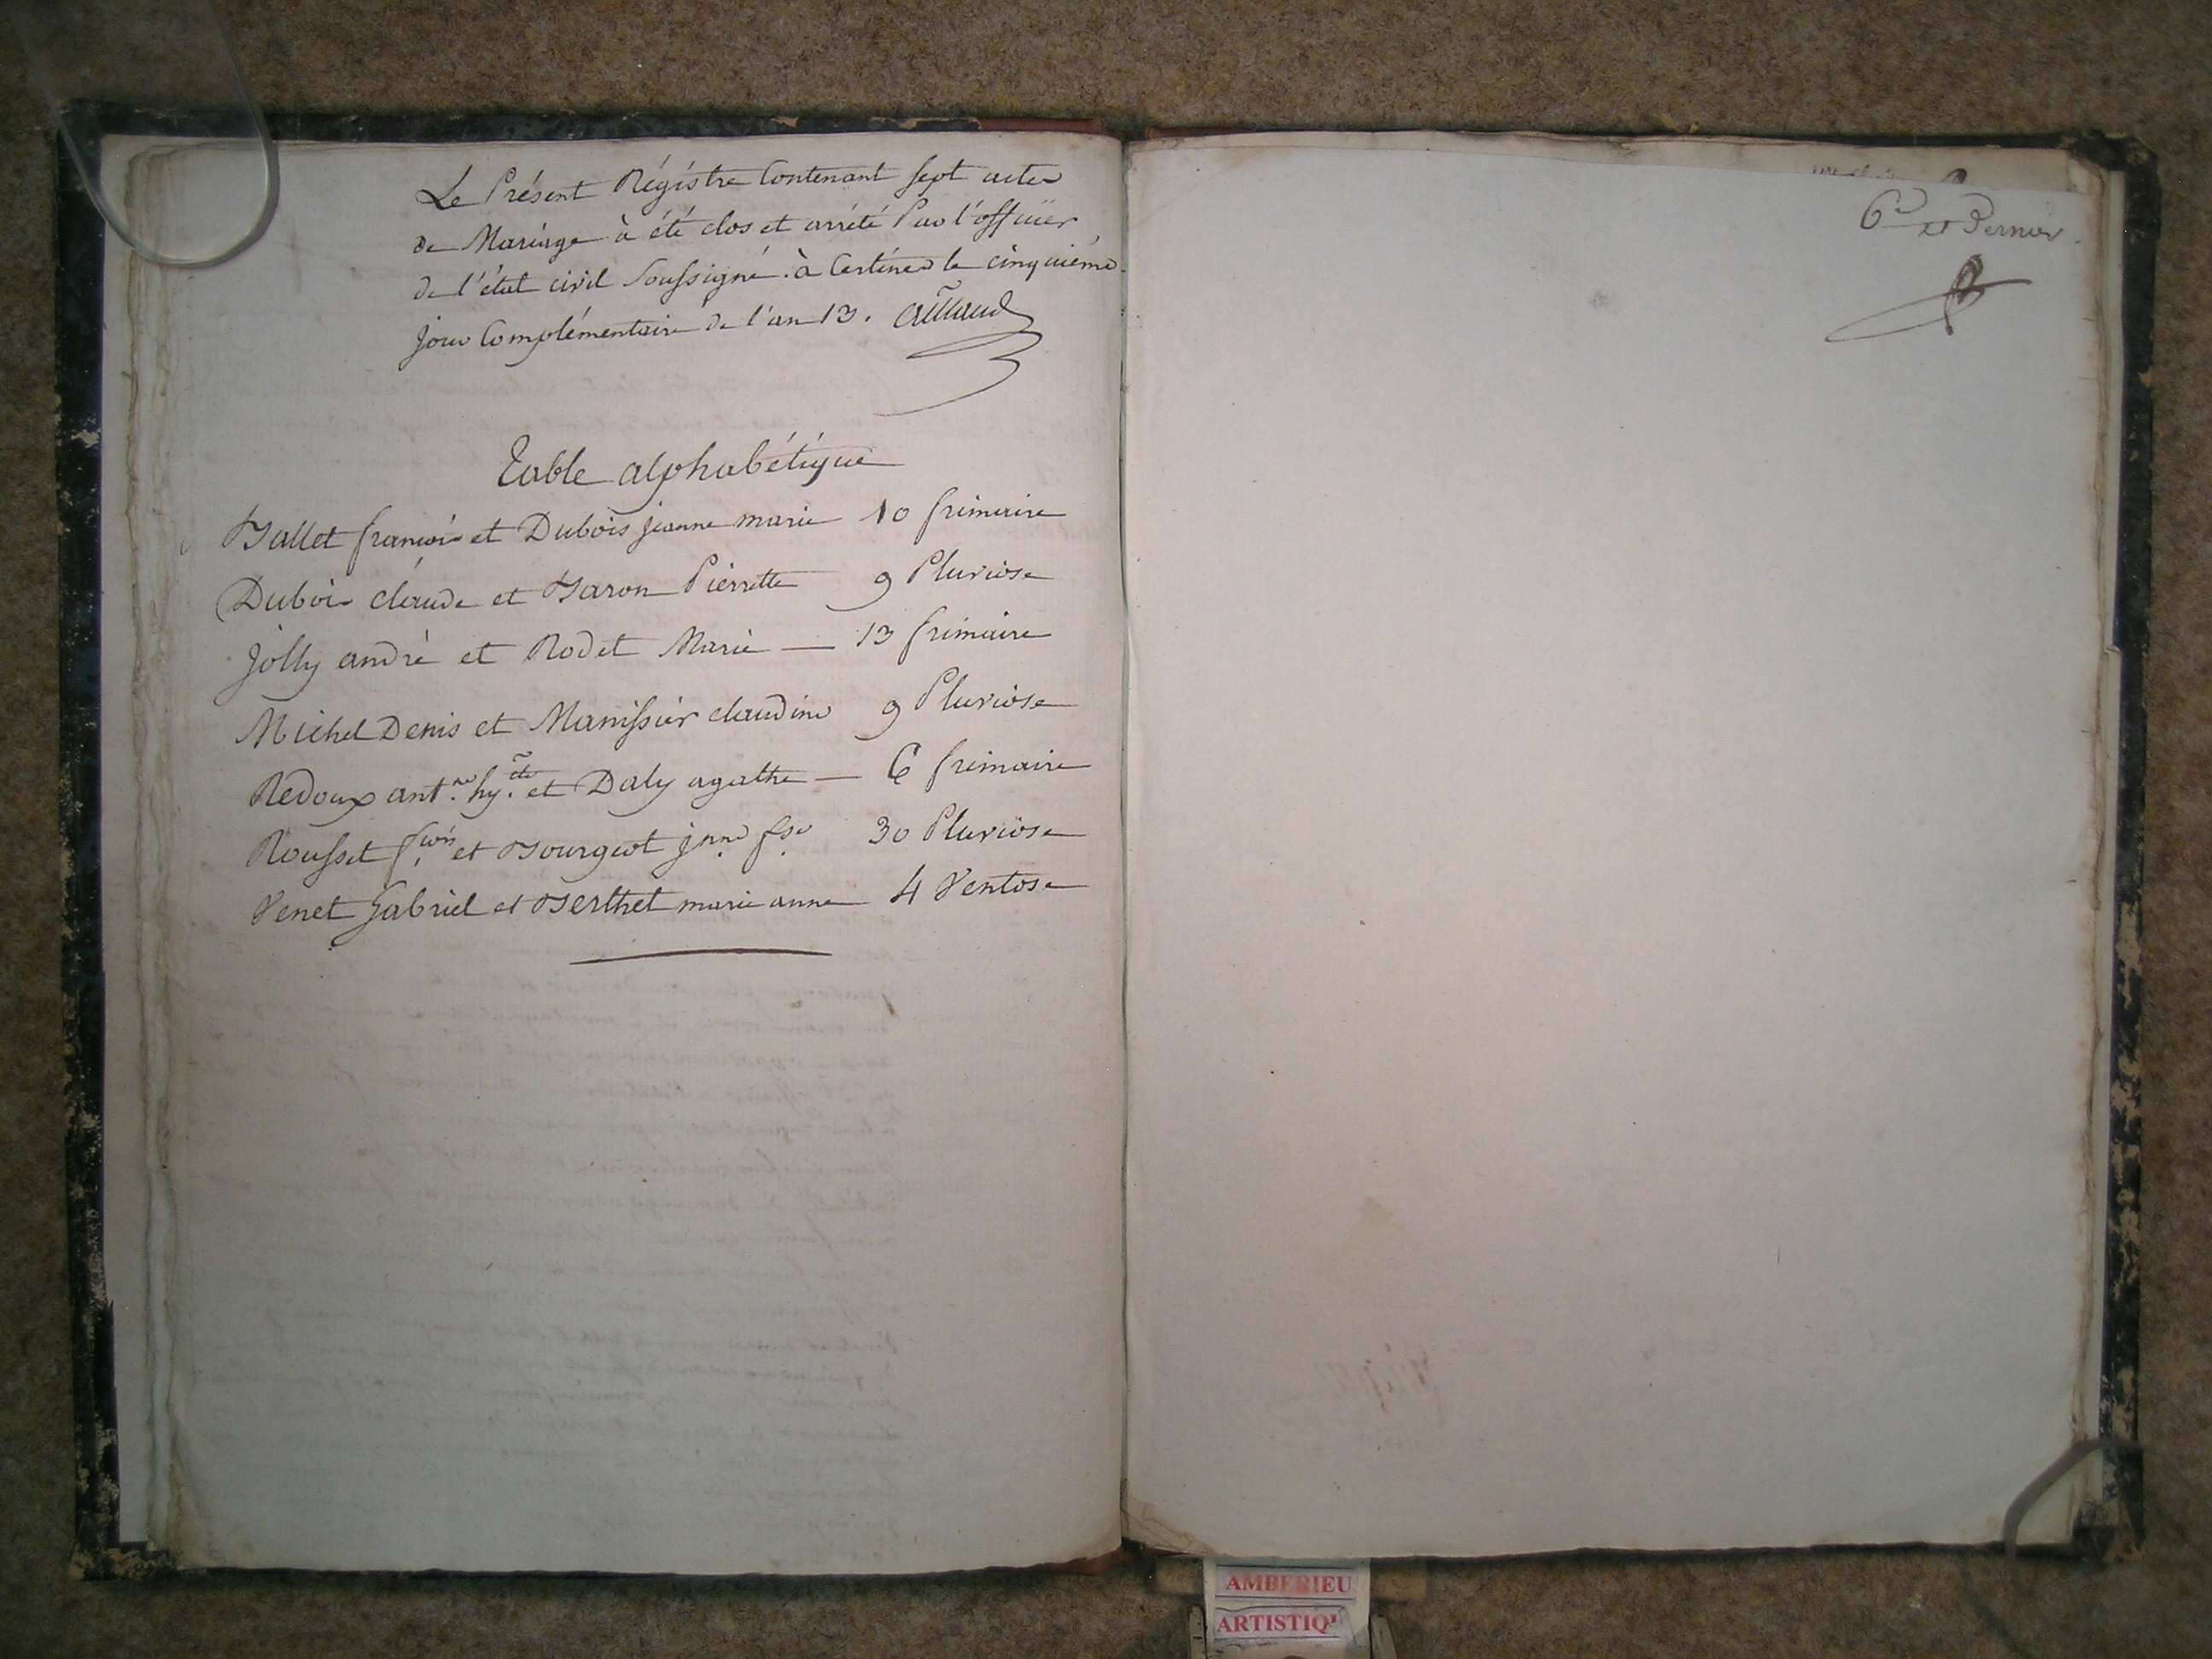 Le Présent Régistre Contenant sept actes
de Mariage à été clos et arrêté Par l'officier
de l'état civil Soussigné. à Certines le cinquiéme
jour Complémentaire de l'an 13.
Table alphabétique
Ballet françois et Dubois jeanne marie 10 frimaire
Dubois claude et Baron Pierrette 9 Pluviose
Jolly andré et Rodet Marie — 13 frimaire
Michel Denis et Manissier claudine 9 Pluviose
Redoux ant.ne hy.te et Daly agathe — 6 frimaire
Rousset f.çois et Bourgeot j.nne f.se 30 Pluviose
Venet Gabriel et Berthet marie anne 4 Ventose
6e et Dernier.
AMBERIEU
ARTISTIQ